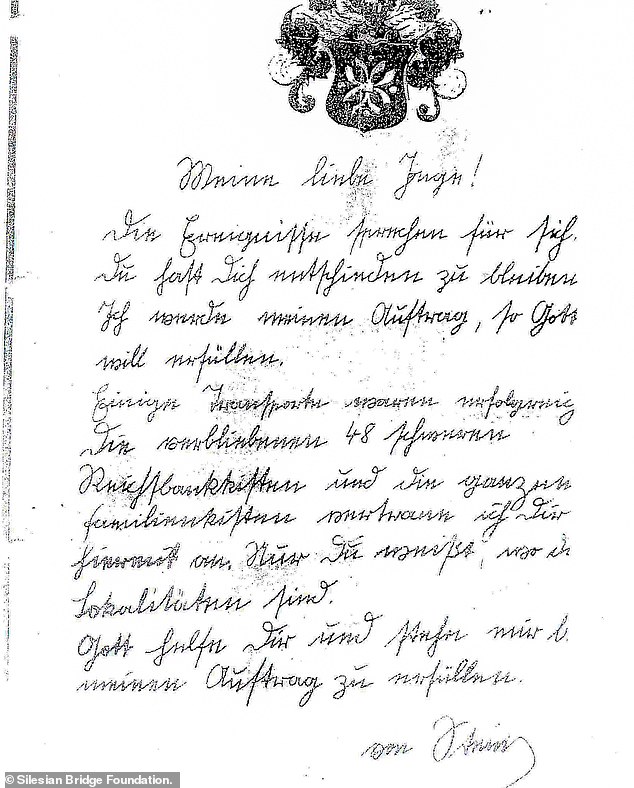 Meine liebe Inge!
Die Ereignisse sprechen für sich.
Du hast Dich entschieden zu bleiben
Ich werde meinen Auftrag, so Gott
will erfüllen.
Einige Transporte waren erfolgreic
Die verbliebenen 48 schweren
Reichsbankkisten und die ganzen
Familienkisten vertraue ich Dir
hiermit an. Nur Du weißt, wo d
Lokalitäten sind.
Gott helfe Dir und stehe mir b
meinen Auftrag zu erfüllen.
von Stein
© Silesian Bridge Foundation.